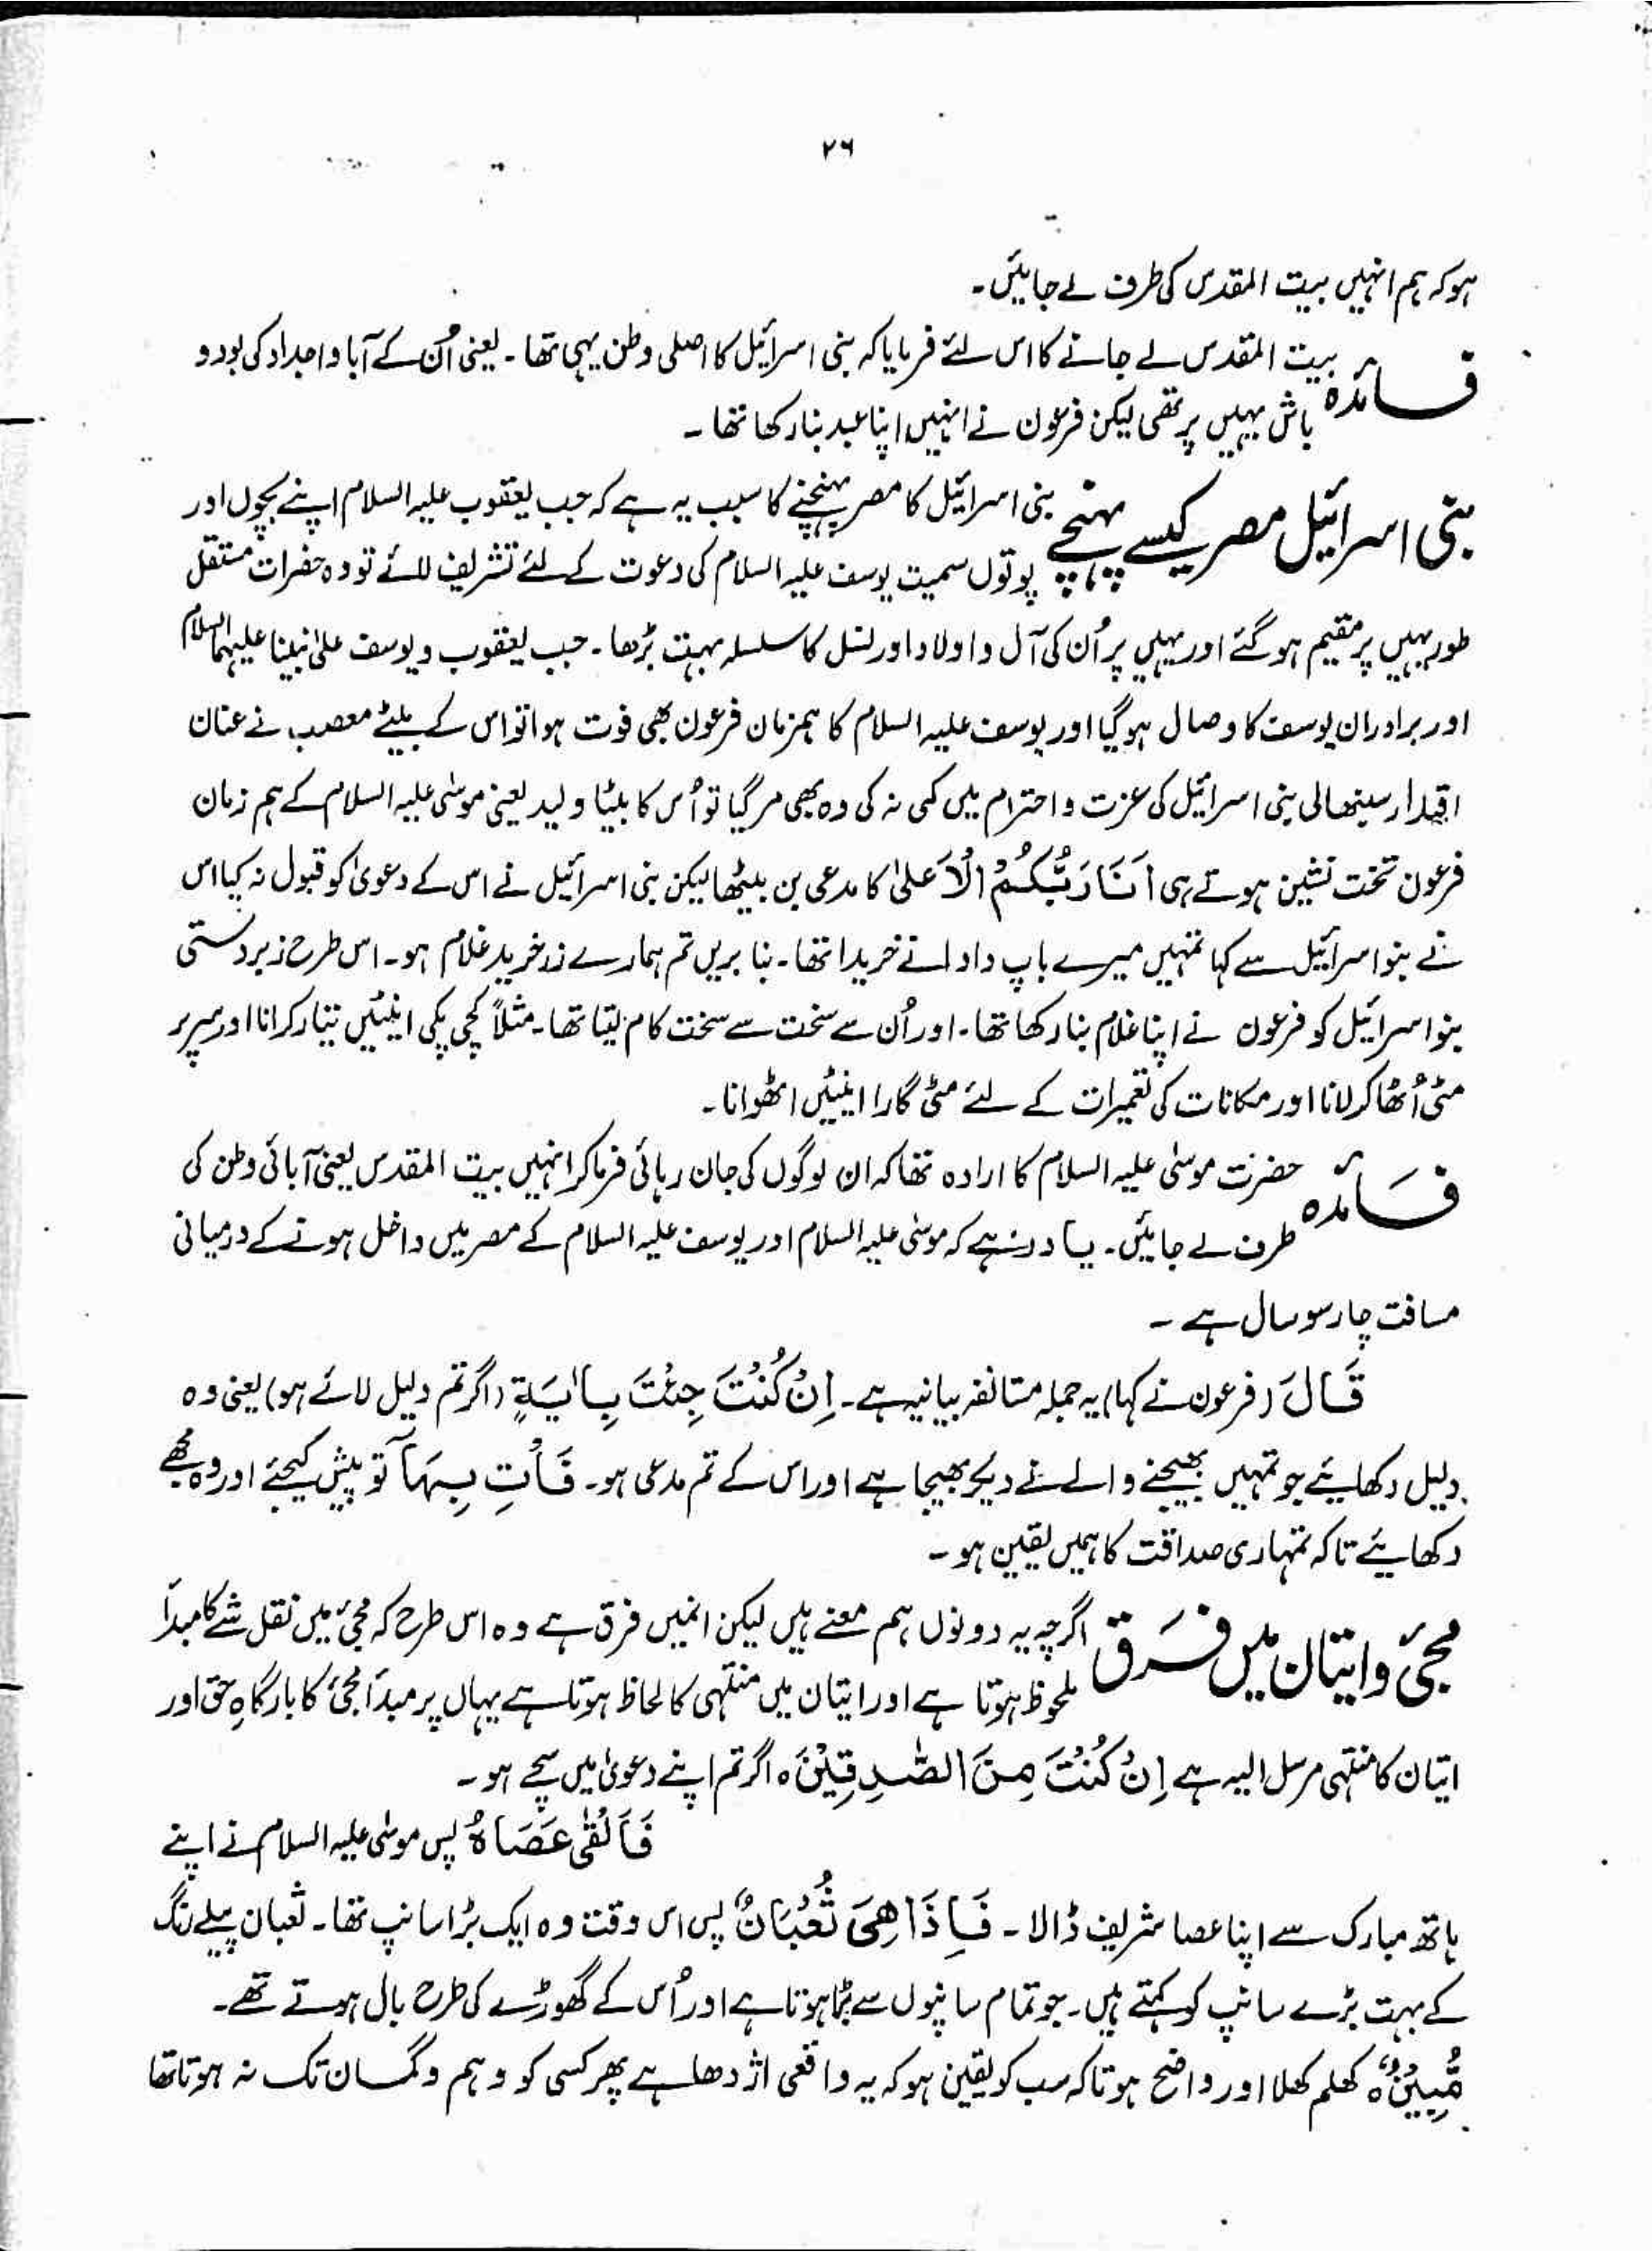 ۲۶
ہو کہ ہم انہیں بیت المقدس کی طرف لے جائیں۔
فائدہ بیت المقدس لے جانے کا اس لئے فرمایا کہ بنی اسرائیل کا اصلی وطن یہی تھا۔ یعنی اُن کے آبا واجداد کی بود و
باش یہیں پر تھی لیکن فرعون نے انہیں اپنا عبد بنا رکھا تھا۔
بنی اسرائیل مصر کیسے پہنچے بنی اسرائیل کا مصر پہنچنے کا سبب یہ ہے کہ جب یعقوب علیہ السلام اپنے بچوں اور
پوتوں سمیت یوسف علیہ السلام کی دعوت کے لئے تشریف لائے تو وہ حضرات مستقل
طور یہیں پر مقیم ہو گئے اور یہیں پر اُن کی آل و اولاد اور نسل کا سلسلہ بہت بڑھا۔ جب یعقوب و یوسف علیٰ نبینا علیہما السلام
اور برادران یوسف کا وصال ہو گیا اور یوسف علیہ السلام کا ہمزمان فرعون بھی فوت ہوا تو اس کے بیٹے معصب نے عنان
اقتدار سنبھالی بنی اسرائیل کی عزت و احترام میں کمی نہ کی وہ بھی مر گیا تو اُس کا بیٹا ولید یعنی موسٰی علیہ السلام کے ہم زمان
فرعون تخت نشین ہوتے ہی اَنَا رَبُّکُمُ الْاَعلیٰ کا مدعی بن بیٹھا لیکن بنی اسرائیل نے اس کے دعویٰ کو قبول نہ کیا اس
نے بنو اسرائیل سے کہا تمہیں میرے باپ دادا نے خریدا تھا۔ بنا بریں تم ہمارے زر خرید غلام ہو۔ اس طرح زبردستی
بنو اسرائیل کو فرعون نے اپنا غلام بنا رکھا تھا۔ اور اُن سے سخت سے سخت کام لیتا تھا۔ مثلاً کچی پکی اینٹیں تیار کرانا اور سر پر
مٹی اُٹھا کر لانا اور مکانات کی تعمیرات کے لئے مٹی گارا اینٹیں اٹھوانا۔
فَائدہ حضرت موسٰی علیہ السلام کا ارادہ تھا کہ ان لوگوں کی جان رہائی فرما کر انہیں بیت المقدس یعنی آبائی وطن کی
طرف لے جائیں۔ یاد رہے کہ موسٰی علیہ السلام اور یوسف علیہ السلام کے مصر میں داخل ہونے کے درمیانی
مسافت چار سو سال ہے ۔
قَالَ (فرعون نے کہا) یہ جملہ مستانفہ بیانیہ ہے۔ اِنْ کُنْتَ جِئْتَ بِاٰیَۃٍ (اگر تم دلیل لائے ہو) یعنی وہ
دلیل دکھایئے جو تمہیں بھیجنے والے نے دیکر بھیجا ہے اور اس کے تم مدعی ہو۔ فَاْتِ بِہَآ تو پیش کیجئے اور وہ مجھے
دکھایئے تاکہ تمہاری صداقت کا ہمیں یقین ہو ۔
مجئ و ایتان میں فَرق اگرچہ یہ دونوں ہم معنے ہیں لیکن انمیں فرق ہے وہ اس طرح کہ مجئ میں نقل شے کا مبدأ
ملحوظ ہوتا ہے اور ایتان میں منتہی کا لحاظ ہوتا ہے یہاں پر مبدأ مجئ کا بارگاہِ حق اور
ایتان کا منتہی مرسل الیہ ہے اِنْ کُنْتَ مِنَ الصّٰدِقِیْنَ ہ اگر تم اپنے دعویٰ میں سچے ہو ۔
فَاَلْقٰی عَصَاہُ پس موسٰی علیہ السلام نے اپنے
ہاتھ مبارک سے اپنا عصا شریف ڈالا ۔ فَاِذَا ھِیَ ثُعْبَانٌ پس اس وقت وہ ایک بڑا سانپ تھا۔ ثعبان پیلے رنگ
کے بہت بڑے سانپ کو کہتے ہیں۔ جو تمام سانپوں سے بڑا ہوتا ہے اور اُس کے گھوڑے کی طرح بال ہوتے تھے۔
مُّبِیْنٌ ہ کھلم کھلا اور واضح ہوتا کہ سب کو یقین ہو کہ یہ واقعی اژدھا ہے پھر کسی کو وہم و گمان تک نہ ہوتا تھا